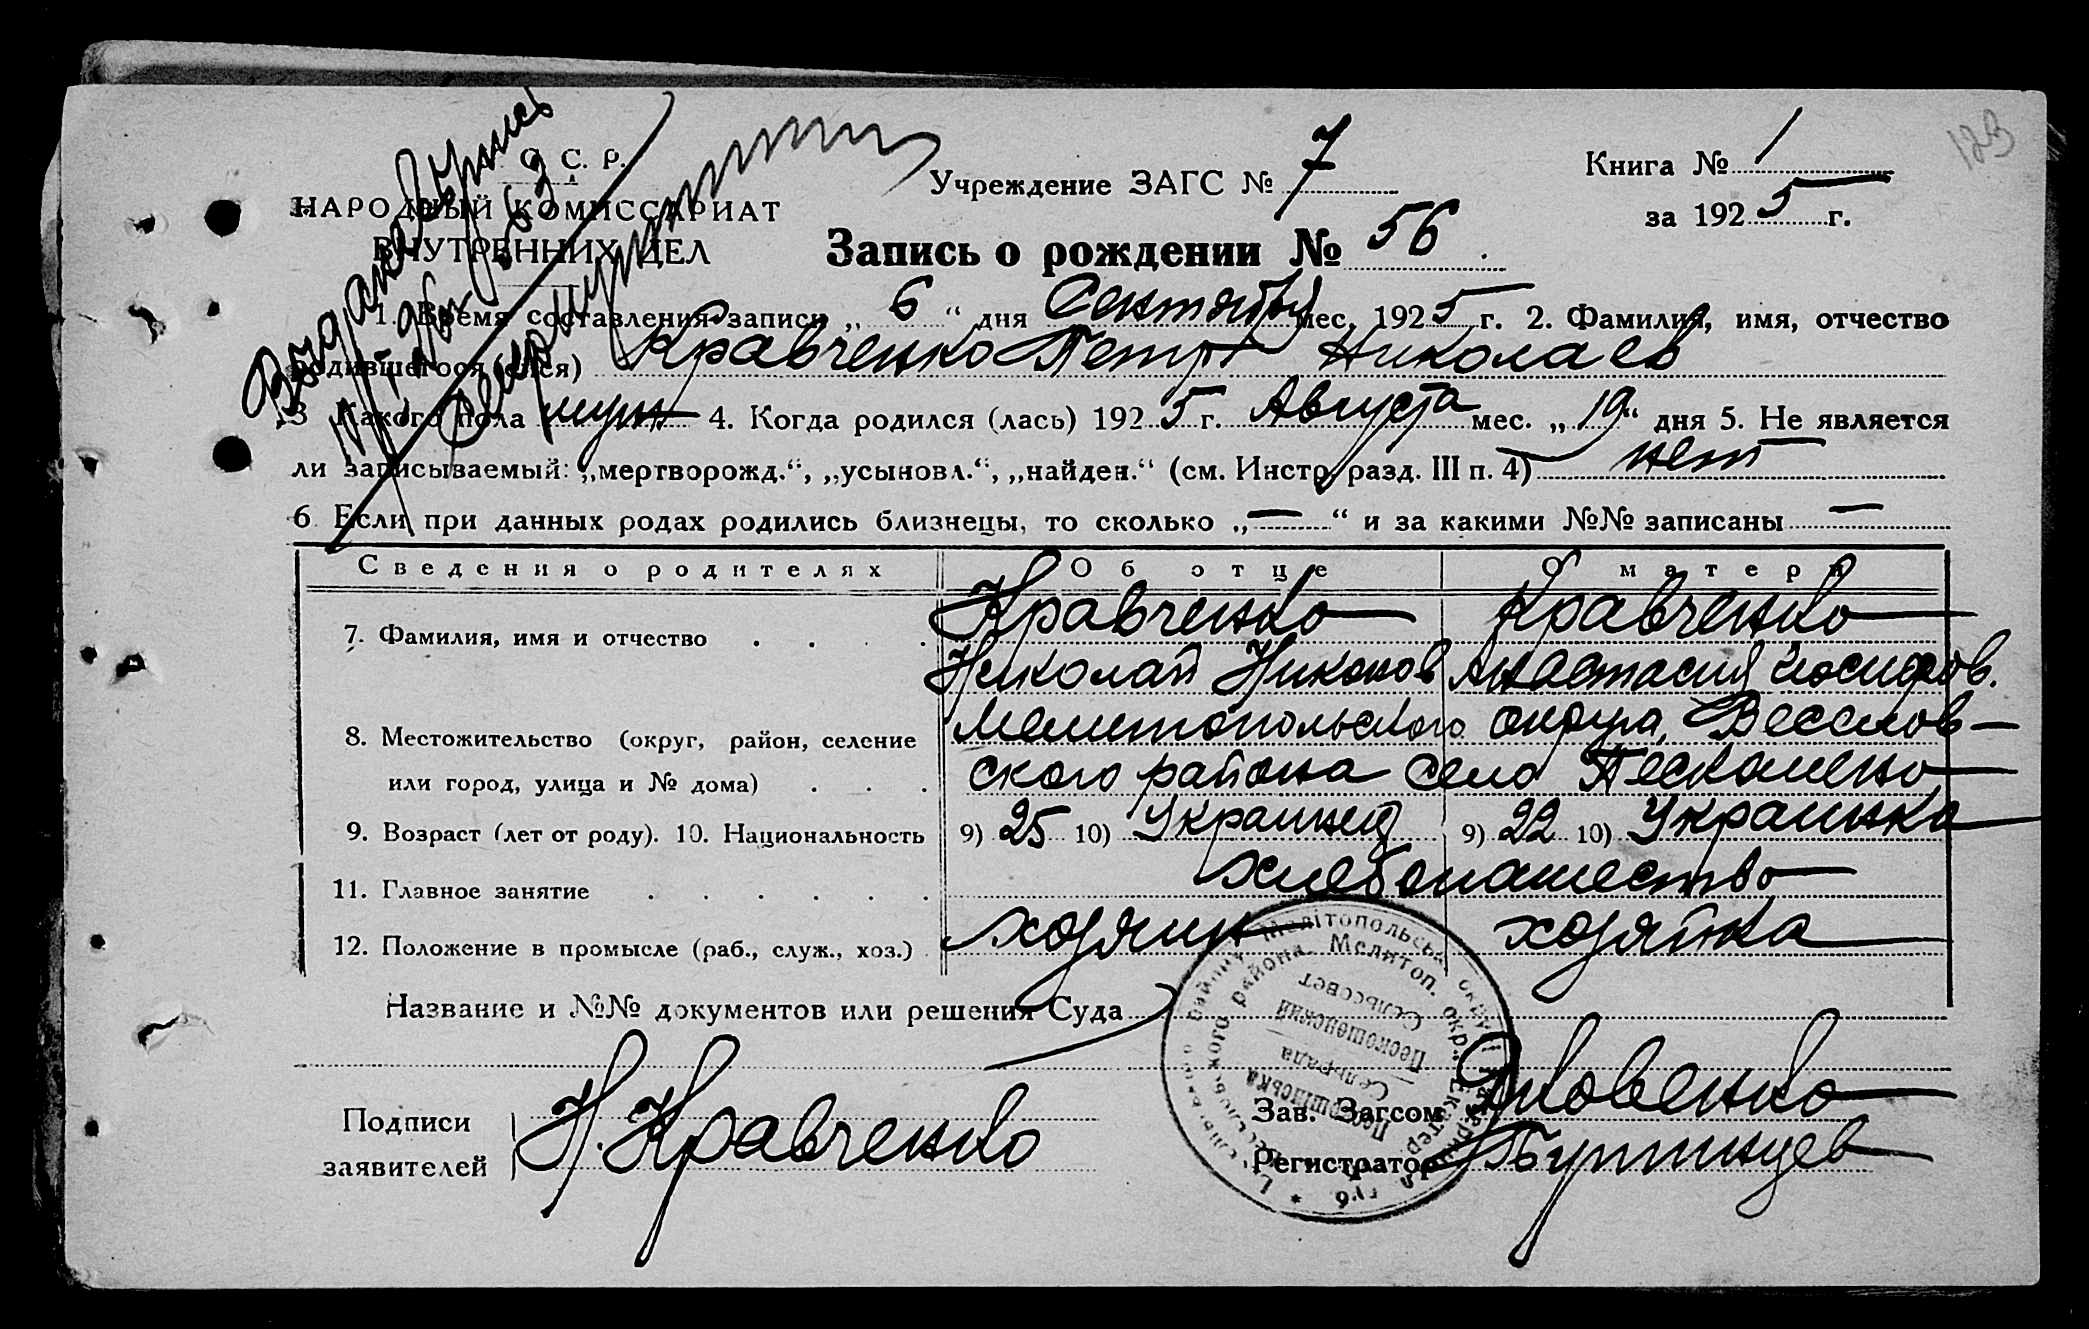 С. С. Р.
НАРОДНЫЙ КОМИССАРИАТ
ВНУТРЕННИХ ДЕЛ
Учреждение ЗАГС № 7
Книга № 1
123
за 1925 г.
Запись о рождении № 56
1. Время составления записи „6“ дня Сентября мес. 1925 г. 2. Фамилия, имя, отчество
родившегося (ейся) Кравченко Петр Николаев
3 Какого пола муж 4. Когда родился (лась) 1925 г. Августа мес. „19“ дня 5. Не является
ли записываемый: „мертворожд.“, „усыновл.“, „найден.“ (см. Инстр. разд. III п. 4) нет
6 Если при данных родах родились близнецы, то сколько „—“ и за какими №№ записаны —
Сведения о родителях Об отце О матери
7. Фамилия, имя и отчество Кравченко Кравченко
Николай Никонов Анастасия Иосифов.
8. Местожительство (округ, район, селение Мелитопольского округа, Веселов-
или город, улица и № дома) ского района село Пескошено
9. Возраст (лет от роду). 10. Национальность 9) 25 10) Украинец 9) 22 10) Украинка
11. Главное занятие хлебопашество
12. Положение в промысле (раб., служ., хоз.) хозяин хозяйка
Название и №№ документов или решения Суда
Подписи
заявителей Н. Кравченко
Зав. Загсом Яковенко
Регистратор
Мелітопольськ. округи
района Мелитоп. окр. Екатер. губ.
Сельрада
Пескошенский
Сельсовет